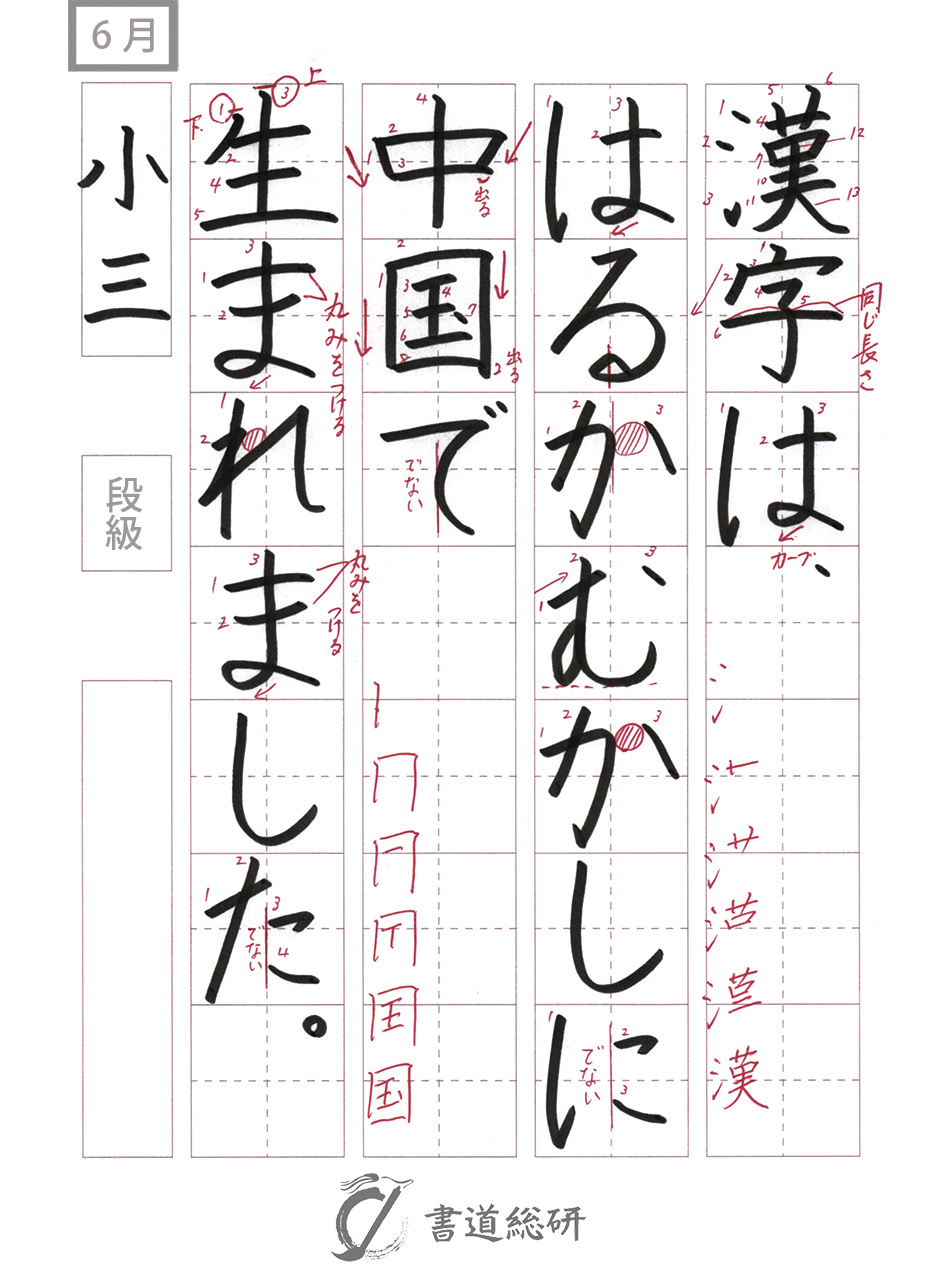 6月
漢字は、
はるかむかしに
中国で
生まれました。
小三
段級
同じ長さ
カーブ
でない
出る
出る
でない
丸みをつける
丸みをつける
でない
上
下
書道総研